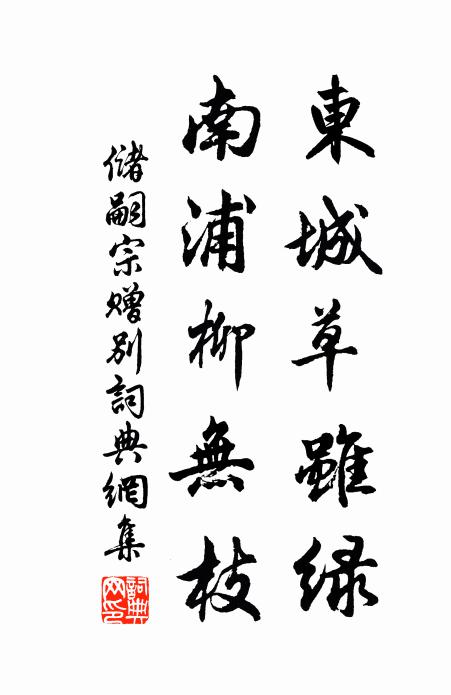 東城草雖緑
南浦柳無枝
儲嗣宗贈別詞典網集